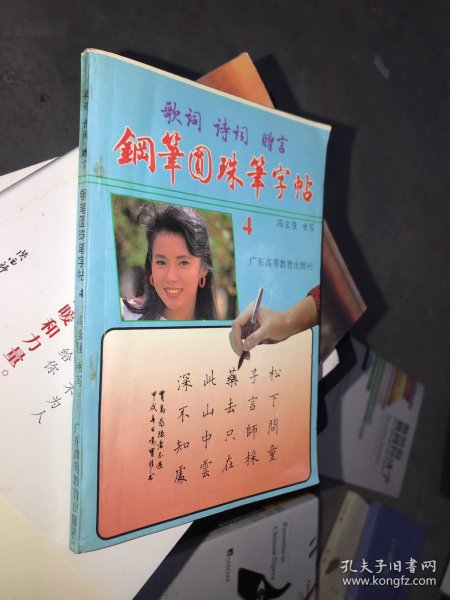 歌词 诗词 赠言
鋼筆圓珠筆字帖
4
冯宝佳 书写
广东高等教育出版社
松下問童
子言師採
藥去只在
此山中雲
深不知處
歌词 诗词 赠言 钢笔圆珠笔字帖 4 冯宝佳 书写 广东高等教育出版社
暖和力量。
给你不为人
Proverbs in
Chinese Opera
孔夫子旧书网
www.kongfz.com